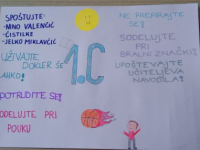 SPOŠTUJTE:
-NINO VALENČIČ
-ČISTILKE
-JELKO MIKLAVČIČ
UŽIVAJTE
DOKLER ŠE
LAHKO!
POTRUDITE SE!
SODELUJTE PRI
POUKU
1.C
NE PREPIRAJTE
SE!
SODELUJTE
PRI
BRALNI ZNAČKI!
UPOŠTEVAJTE
UČITELJEVA
NAVODILA!